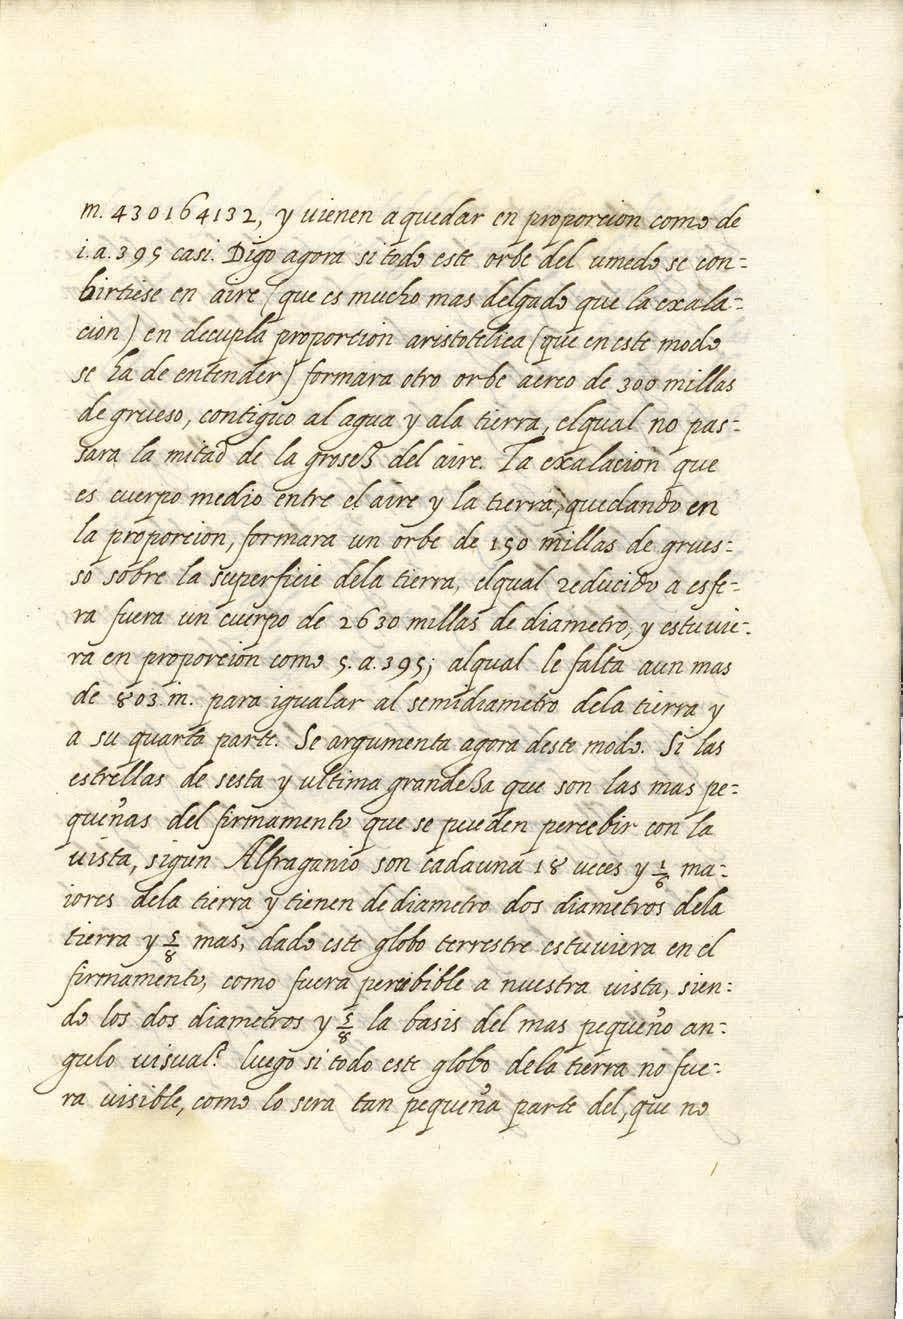 m. 430164132, y uienen a quedar en proporcion como de
i.a.395 casi. Digo agora si todo este orbe del umedo se con=
birtiese en aire (que es mucho mas delgado que la exala=
cion) en decupla proporcion aristotelica (que en este modo
se ha de entender) formara otro orbe aereo de 300 millas
de grueso, contiguo al agua y ala tierra, elqual no pas=
sara la mitad de la groseß del aire. La exalacion que
es cuerpo medio entre el aire y la tierra, quedando en
la proporcion, formara un orbe de 150 millas de grues=
so sobre la superficie dela tierra, elqual reducido a esfe=
ra fuera un cuerpo de 2630 millas de diametro, y estuuie=
ra en proporcion como 5.a.395; alqual le falta aun mas
de 803 m. para igualar al semidiametro dela tierra y
a su quarta parte. Se argumenta agora deste modo. Si las
estrellas de sesta y ultima grandeßa que son las mas pe=
queñas del firmamento que se pueden percebir con la
uista, sigun Alfraganio son cadauna 18 ueces y 1/6 ma=
iores dela tierra y tienen de diametro dos diametros dela
tierra y 5/8 mas, dado este globo terrestre estuuiera en el
firmamento, como fuera percibible a nuestra uista, sien=
do los dos diametros y 5/8 la basis del mas pequeño an=
gulo uisual? luego si todo este globo dela tierra no fue=
ra uisible, como lo sera tan pequeña parte del, que no